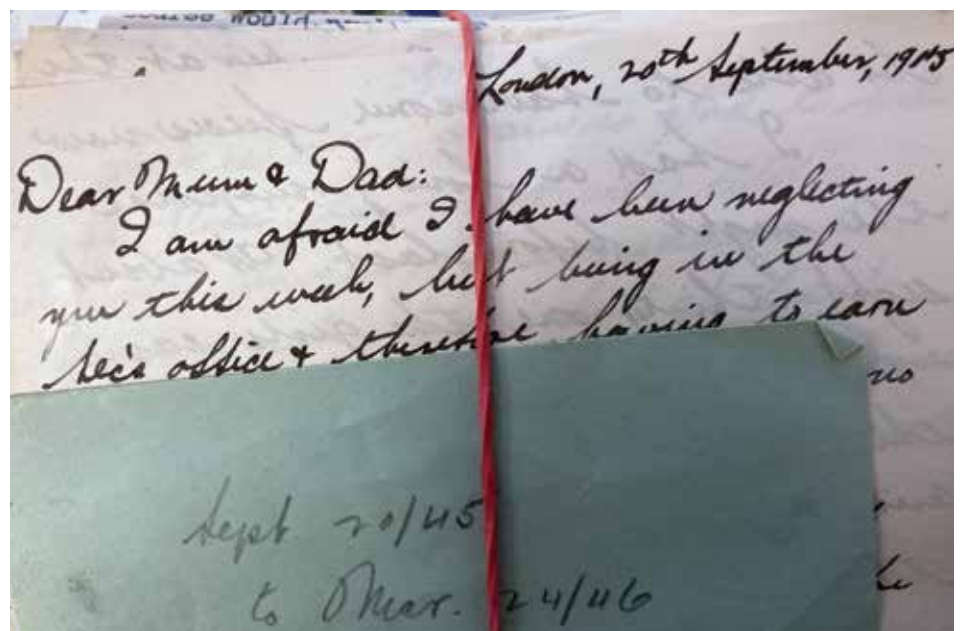 London, 20th September, 1945
Dear Mum & Dad:
I am afraid I have been neglecting
you this week, but being in the
Sec's office & therefore having to earn
no
Sept. 20/45
to Mar. 24/46